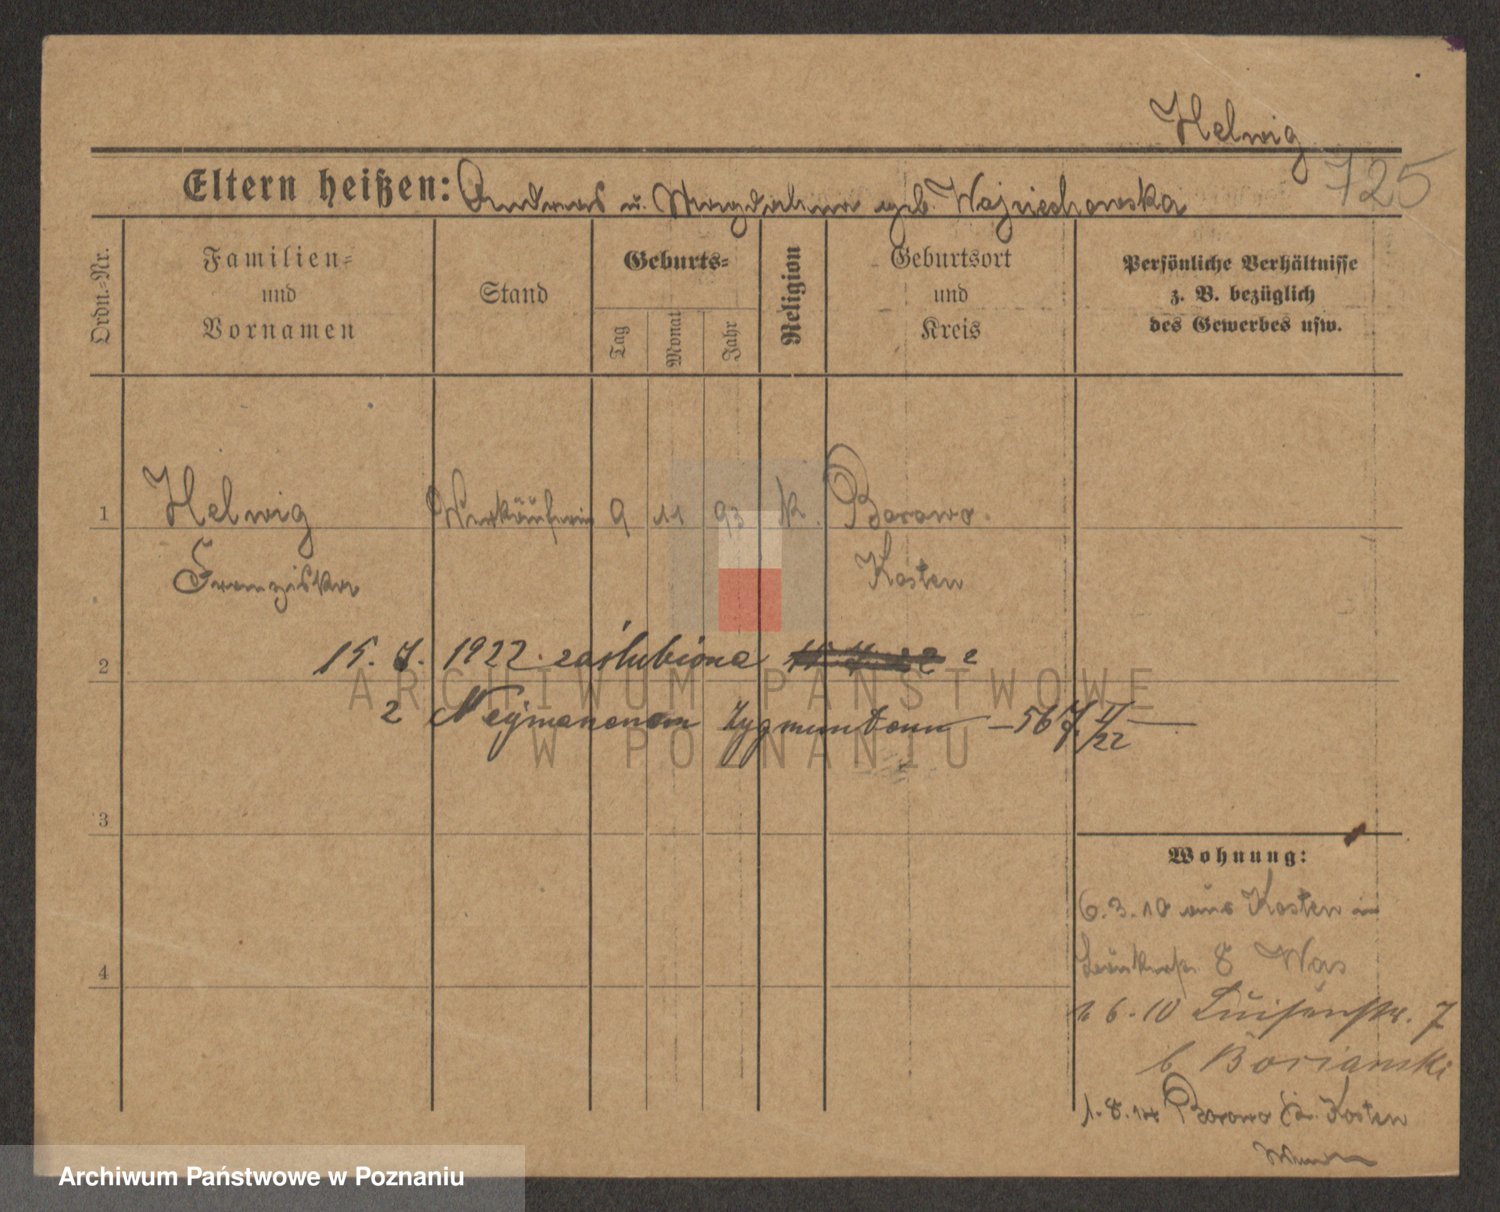 Helwig
725
Eltern heißen: Andreas u. Magdalena geb. Wojciechowska
Ordn.-Nr.
Familien-
und
Vornamen
Stand
Geburts-
Tag
Monat
Jahr
Religion
Geburtsort
und
Kreis
Persönliche Verhältnisse
z. B. bezüglich
des Gewerbes usw.
1 Helwig Verkäuferin 9 11 93 k. Borowo.
Franziska Kosten
2 15. 7. 1922 zaślubiona z
z Nejmananem Zygmuntem – 567 II/22
3
4
Wohnung:
6.3.10 aus Kosten in
8
6.10 Luisenstr. 7
b
1.8. Borowo Kr. Kosten
ARCHIWUM PAŃSTWOWE
W POZNANIU
Archiwum Państwowe w Poznaniu